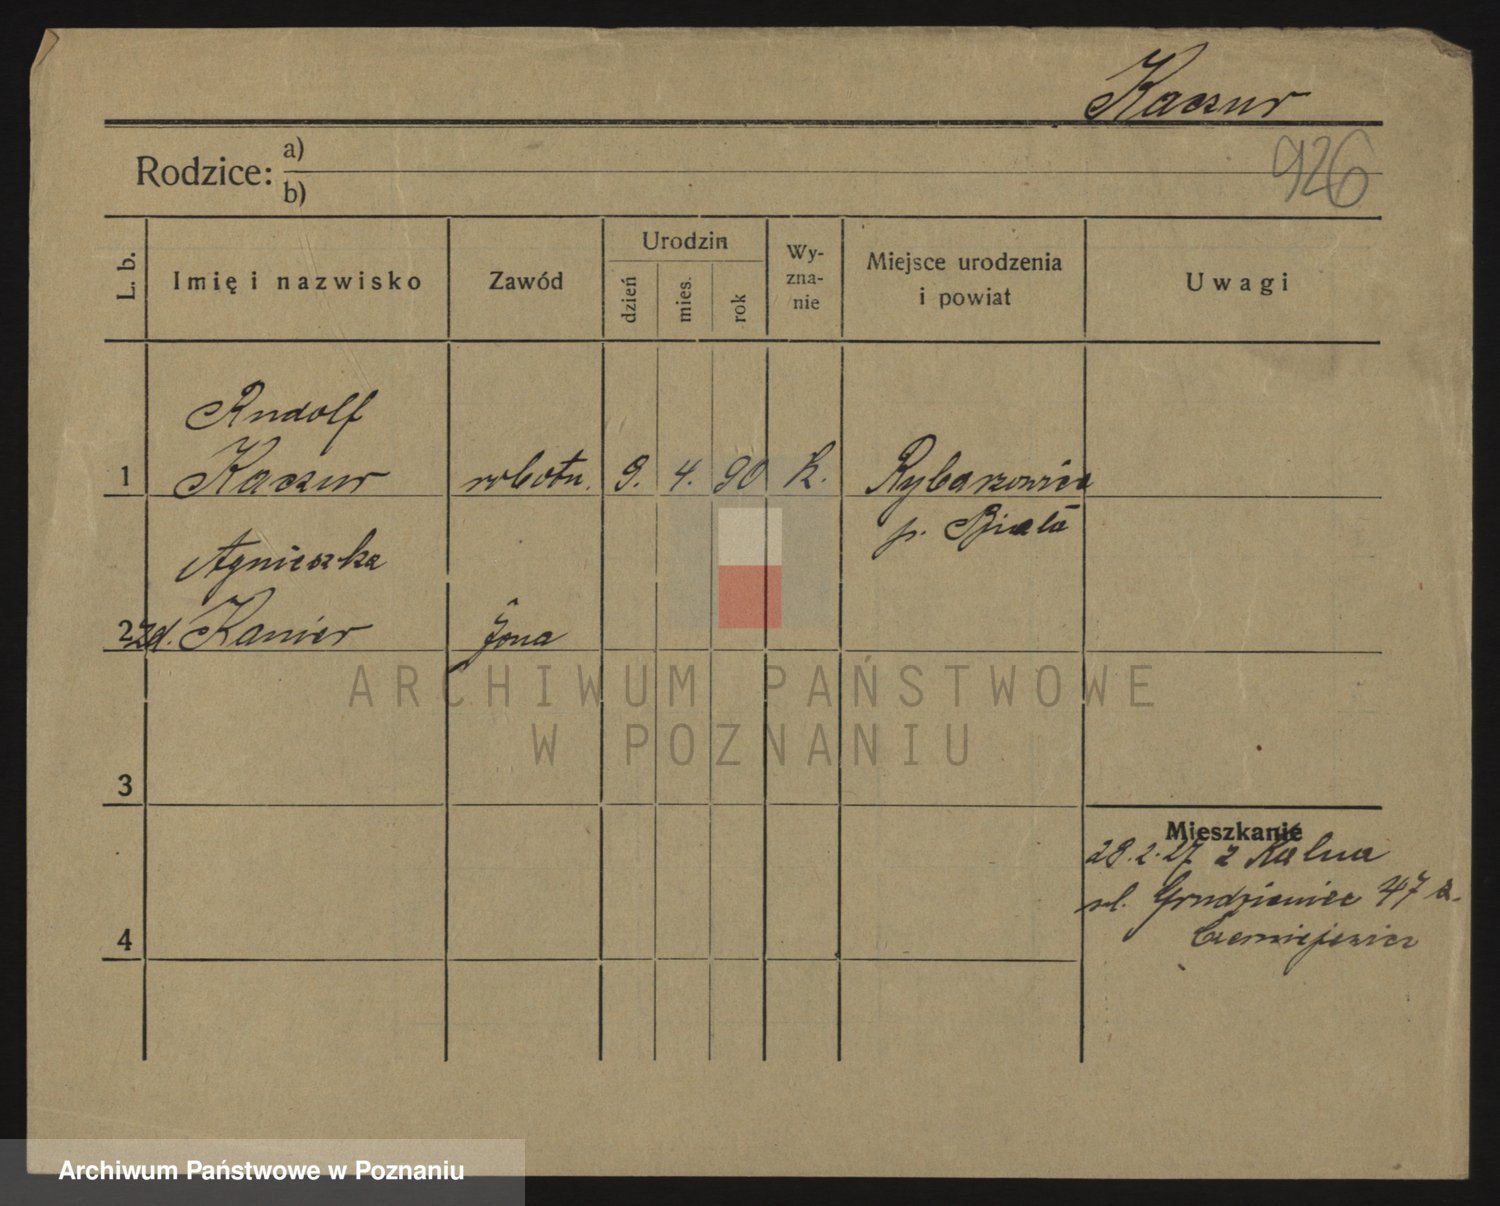 Kaczur
926
Rodzice: a)
b)
L. b.
Imię i nazwisko
Zawód
Urodzin
dzień
mies.
rok
Wy-
zna-
nie
Miejsce urodzenia
i powiat
Uwagi
Rudolf
1 Kaczur robotn. 9. 4. 90 k. Rybarzowice
p. Biała
Agnieszka
2 zd. Kanier żona
3
Mieszkanie
28.2.27 z
ul. Grudzieniec 47 a.
Czerniejewicz
4
ARCHIWUM PAŃSTWOWE
W POZNANIU
Archiwum Państwowe w Poznaniu